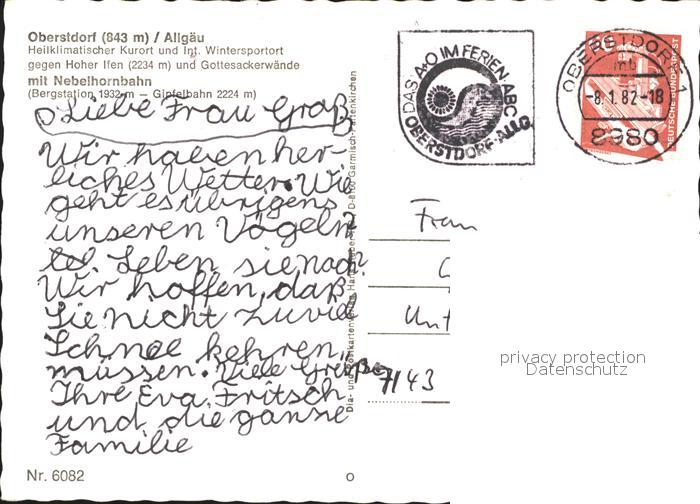 Oberstdorf (843 m) / Allgäu
Heilklimatischer Kurort und Int. Wintersportort
gegen Hoher Ifen (2234 m) und Gottesackerwände
mit Nebelhornbahn
(Bergstation 1932 m — Gipfelbahn 2224 m)
Liebe Frau Groß
Wir haben her-
liches Wetter. Wie
geht es übrigens
unseren Vögeln?
Leben sie noch?
Wir hoffen, daß
Sie nicht zuviel
Schnee kehren
müssen. Viele Grüße
Ihre Eva Fritsch
und die ganse
Familie
Nr. 6082
DAS A+O IM FERIEN-ABC
OBERSTDORF-ALLG
OBERSTDORF 1
mb
-8.1.82-18
8980
DEUTSCHE BUNDESPOST
Frau
Unt
7143
privacy protection
Datenschutz